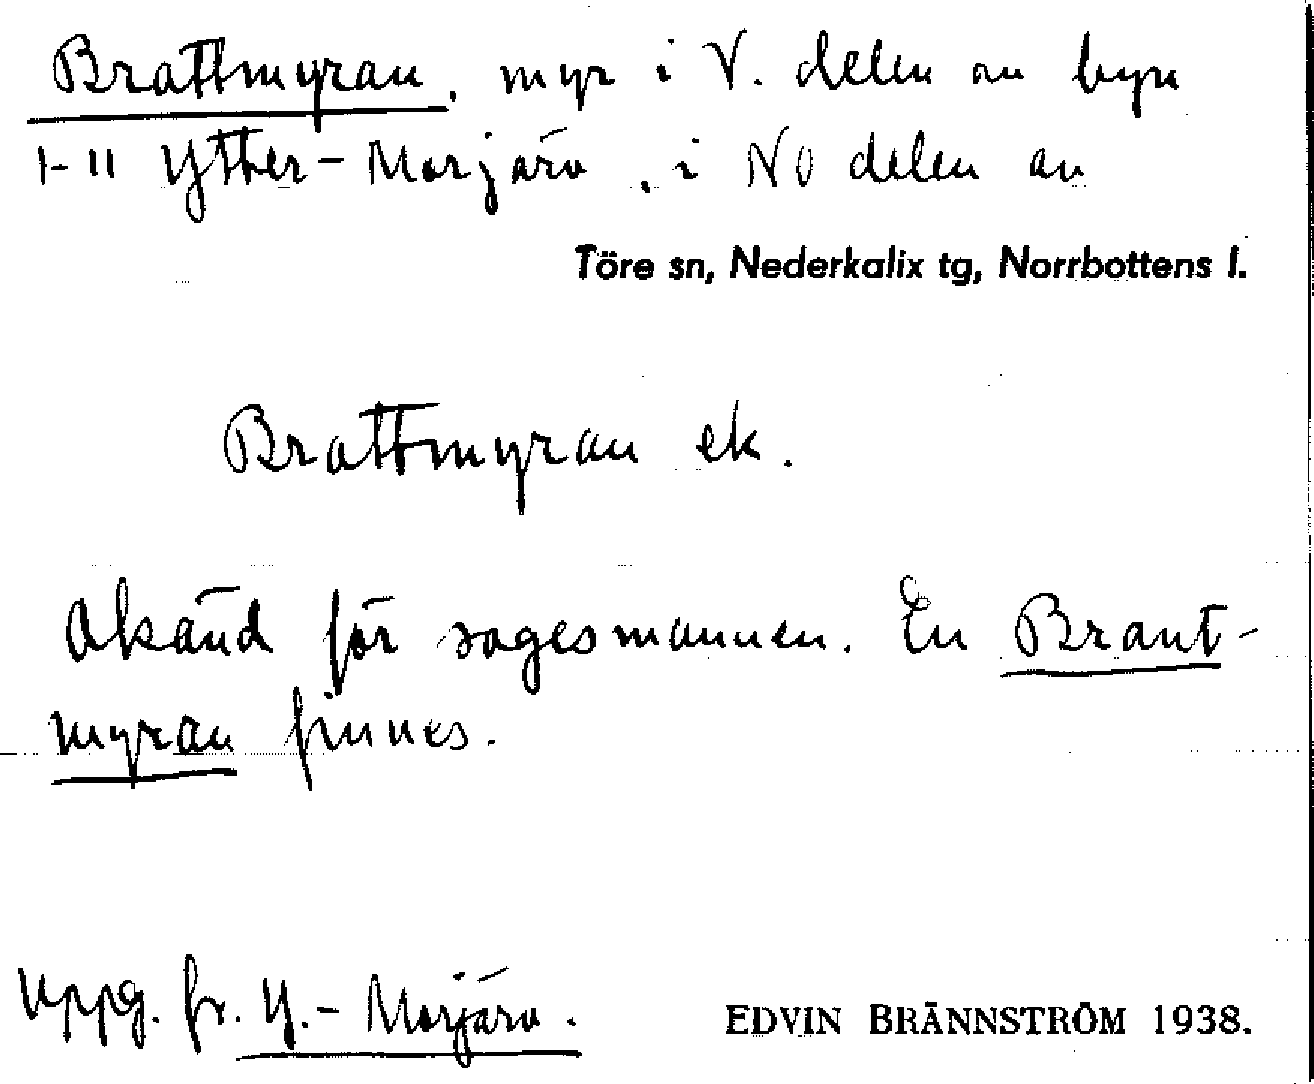 Brattmyran, myr i V. delen av byn
I-II Ytter-Morjärv, i NO delen av
Töre sn, Nederkalix tg, Norrbottens l.
Brattmyran ek.
Okänd för sagesmannen. En Brant-
myran finnes.
Uppg. fr. Y.-Morjärv.
EDVIN BRÄNNSTRÖM 1938.